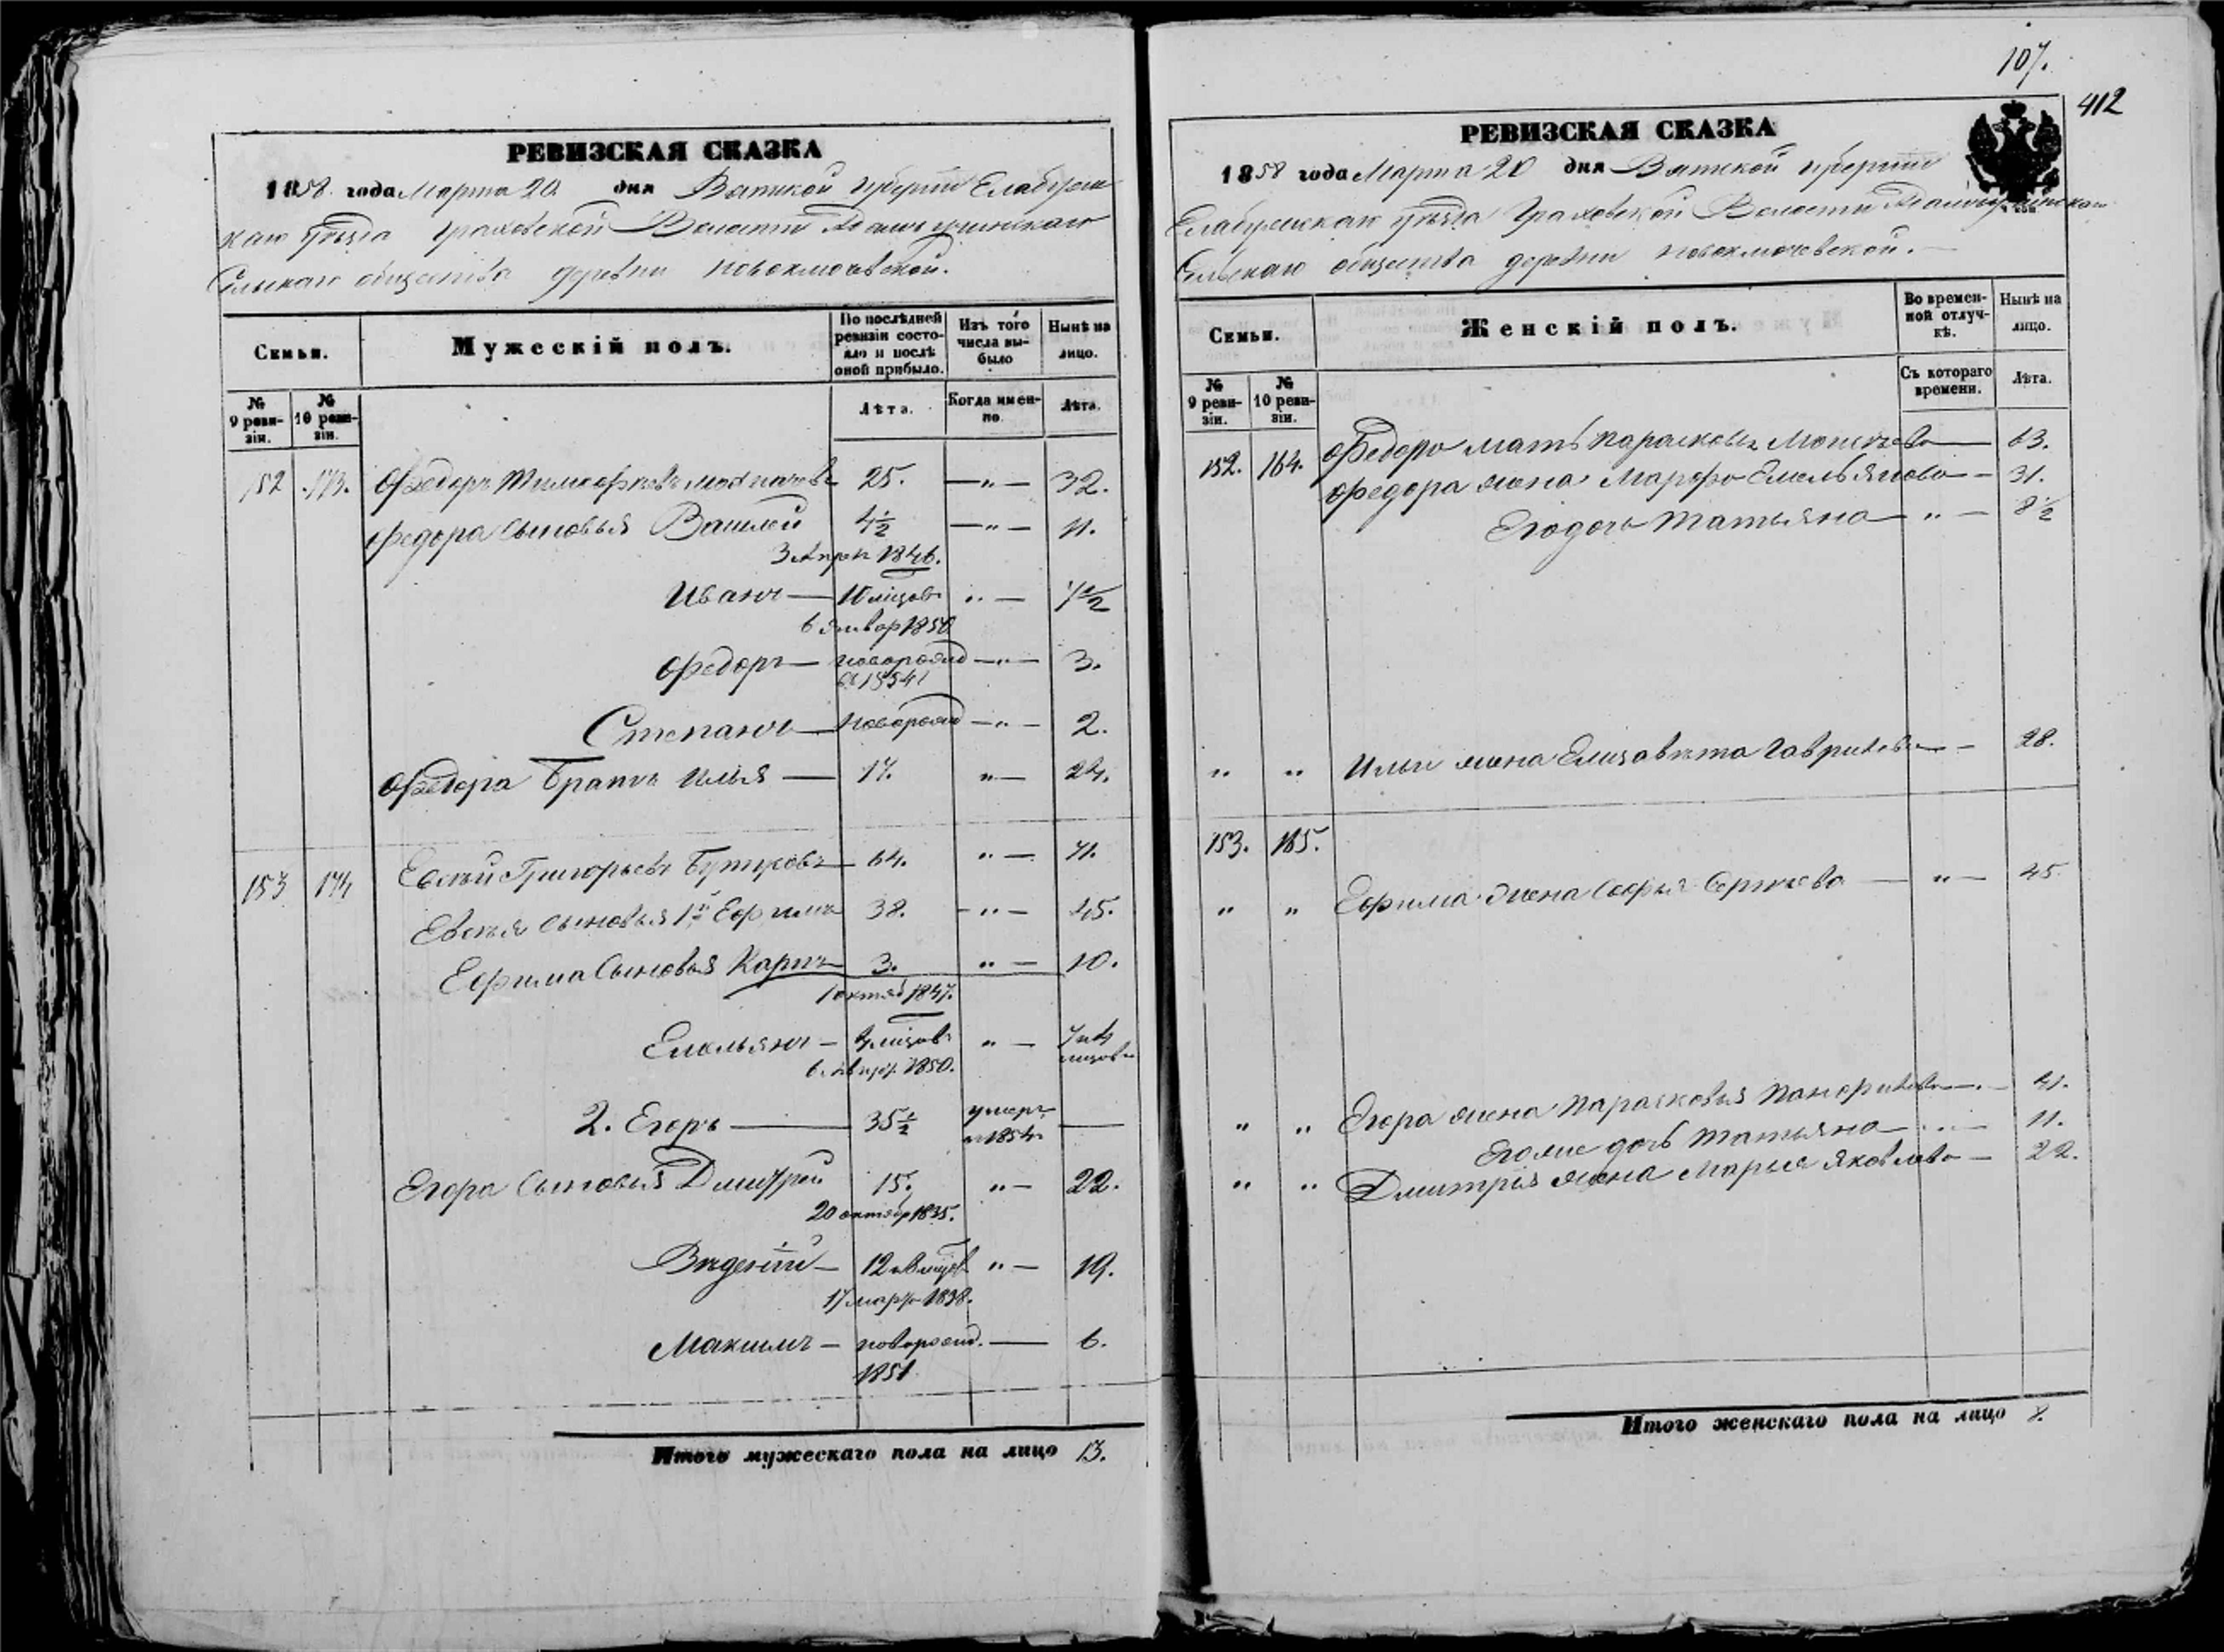 107.
412
РЕВИЗСКАЯ СКАЗКА
1858 года Марта 20 дня Вятской губернии Елабужс
каго уѣзда Граховской Волости
Сельскаго общества деревни Новоключевской.
Семьи.
Мужескій полъ.
По послѣдней ревизіи состояло и послѣ оной прибыло.
Изъ того числа выбыло
Нынѣ на лицо.
№ 9 ревизіи.
№ 10 ревизіи.
Лѣта.
Когда именно.
Лѣта.
152 173. Федоръ Тимофѣевъ 25. —"— 32.
Федора сыновья Василей 4½ —"— 11.
3 Апрѣл 1846.
Иванъ — 10 мѣсцов " — 7½
6 Январ 1850
Федоръ — новорожд —"— 3.
въ 1854
Степанъ — новорожд —"— 2.
Федора братъ Илья — 17. "— 24.
153 174 Евсѣй Григорьевъ Бутуровъ — 64. " — 71.
Евсѣя сыновья 1й Ефимъ 38. —"— 45.
Ефима сыновья Карпъ 3. " — 10.
1 октяб 1847.
Емельянъ — мѣсцов " — 7 и 4 мѣсцов
1850.
2. Егоръ — 35½ умеръ в 1854 —
Егора сыновья Дмитрей 15. "— 22.
20 октябр 1835.
12 " — 19.
17 март 1838.
Максимъ — новорожд. — 6.
1851
Итого мужескаго пола на лицо 13.
РЕВИЗСКАЯ СКАЗКА
1858 года Марта 20 дня Вятской губернии
Елабужскаго уѣзда Граховской Волости
Сельскаго общества деревни Новоключевской.—
Семьи.
Женскій полъ.
Во временной отлучкѣ.
Нынѣ на лицо.
№ 9 ревизіи.
№ 10 ревизіи.
Съ котораго времени.
Лѣта.
152. 164. Федора мать Парасковья — 63.
Федора жена Марфа Емельянова — 31.
Его дочь Татьяна — " — 8½
" " Ильи жена Елизавета Гаврилова — 28.
153. 165.
" " Ефима жена Софья Сергѣева — "— 45.
" " Егора жена Парасковья Панфилова — 41.
Егоже дочь Татьяна — 11.
" " Дмитрія жена Марья Яковлева — 22.
Итого женскаго пола на лицо 8.